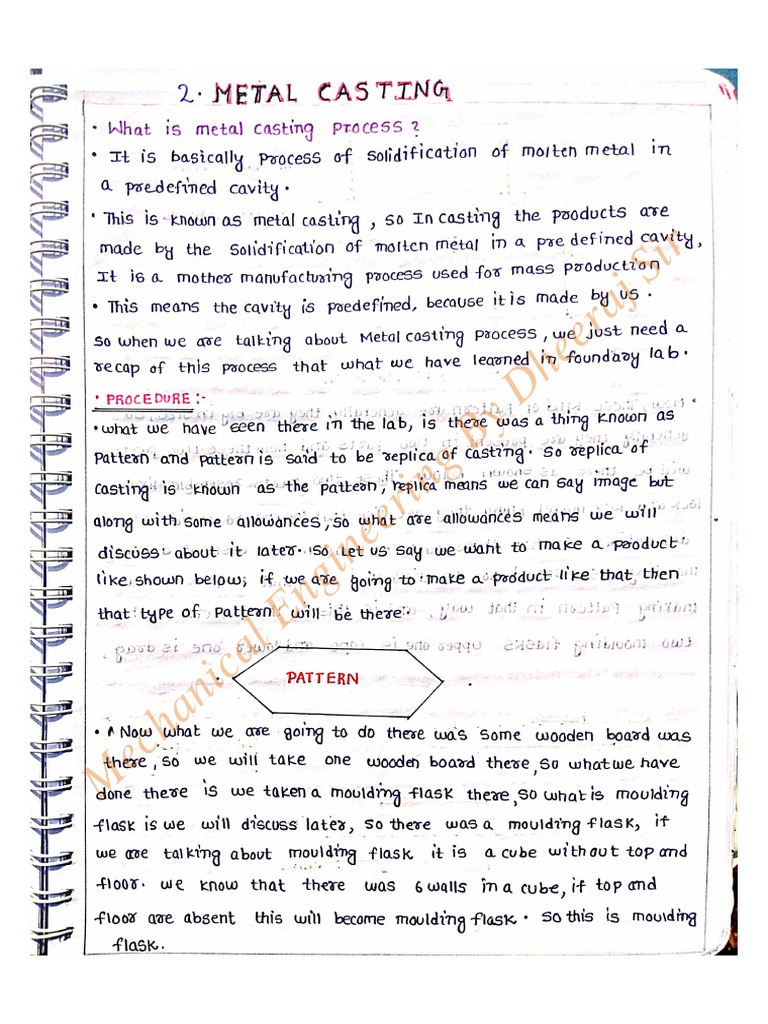 2. METAL CASTING
• What is metal casting process?
• It is basically process of solidification of molten metal in
a predefined cavity.
• This is known as metal casting, so In casting the products are
made by the solidification of molten metal in a pre defined cavity,
It is a mother manufacturing process used for mass production
• This means the cavity is predefined, because it is made by us.
so when we are talking about Metal casting process, we just need a
recap of this process that what we have learned in foundary lab.
• PROCEDURE:-
• what we have seen there in the lab, is there was a thing known as
Pattern and pattern is said to be replica of casting. so replica of
casting is known as the pattern, replica means we can say image but
along with some allowances, so what are allowances means we will
discuss about it later. so let us say we want to make a product
like shown below, if we are going to make a product like that then
that type of pattern will be there.
PATTERN
• Now what we are going to do there was some wooden board was
there, so we will take one wooden board there, so what we have
done there is we taken a moulding flask there, so what is moulding
flask is we will discuss later, so there was a moulding flask, if
we are talking about moulding flask it is a cube without top and
floor. we know that there was 6 walls in a cube, if top and
floor are absent this will become moulding flask. so this is moulding
flask.
Mechanical Engineering By Dheeraj Sir